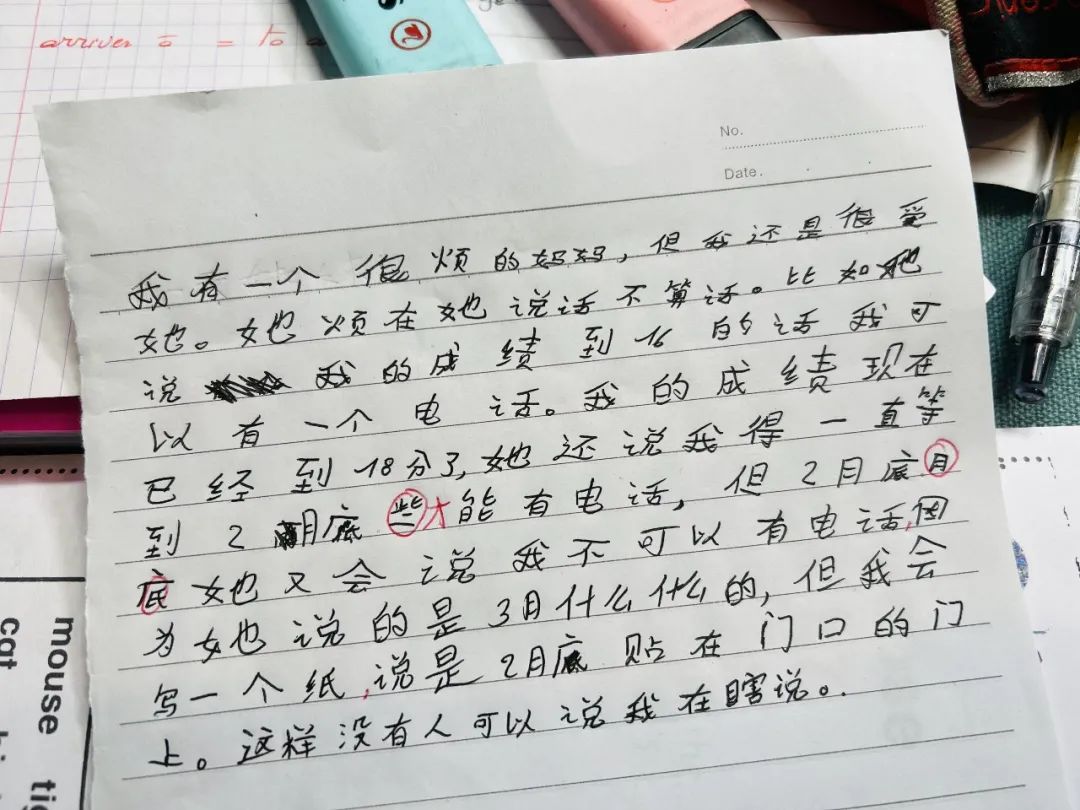 arriver à = to a
No.
Date.
我有一个很烦的妈妈，但我还是很爱
她。她烦在她说话不算话。比如她
说我的成绩到16的话我可
以有一个电话。我的成绩现在
已经到18分了，她还说我得一直等
到2月底些能有电话，但2月底月
底她又会说我不可以有电话，因
为她说的是3月什么什么的，但我会
写一个纸，说是2月底贴在门口的门
上。这样没有人可以说我在瞎说。
mouse tig
cat